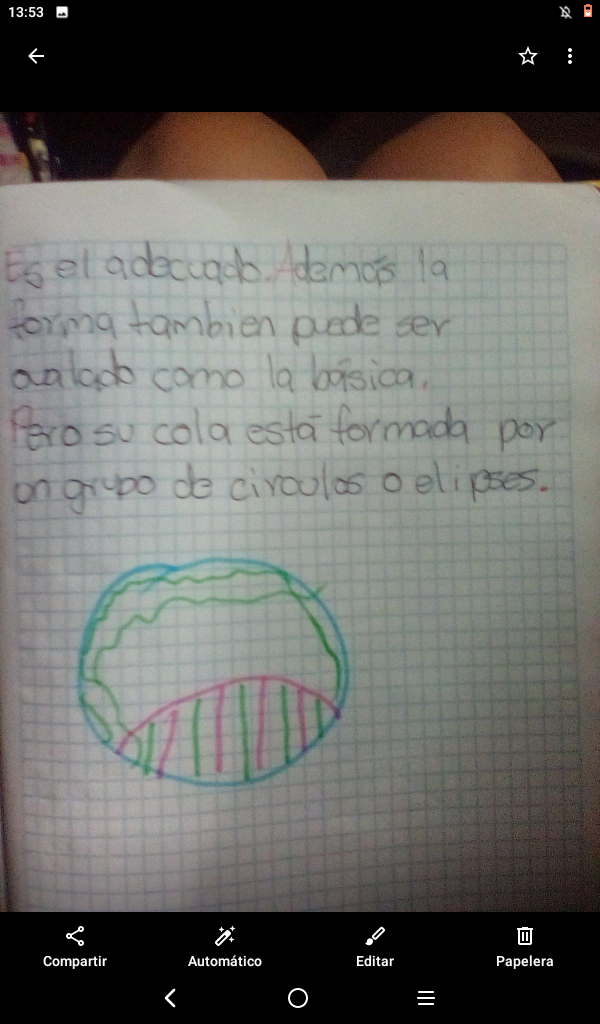 13:53
Es el adecuado. Además la
forma tambien puede ser
ovalado como la básica.
Pero su cola está formada por
un grupo de circulos o elipses.
Compartir Automático Editar Papelera